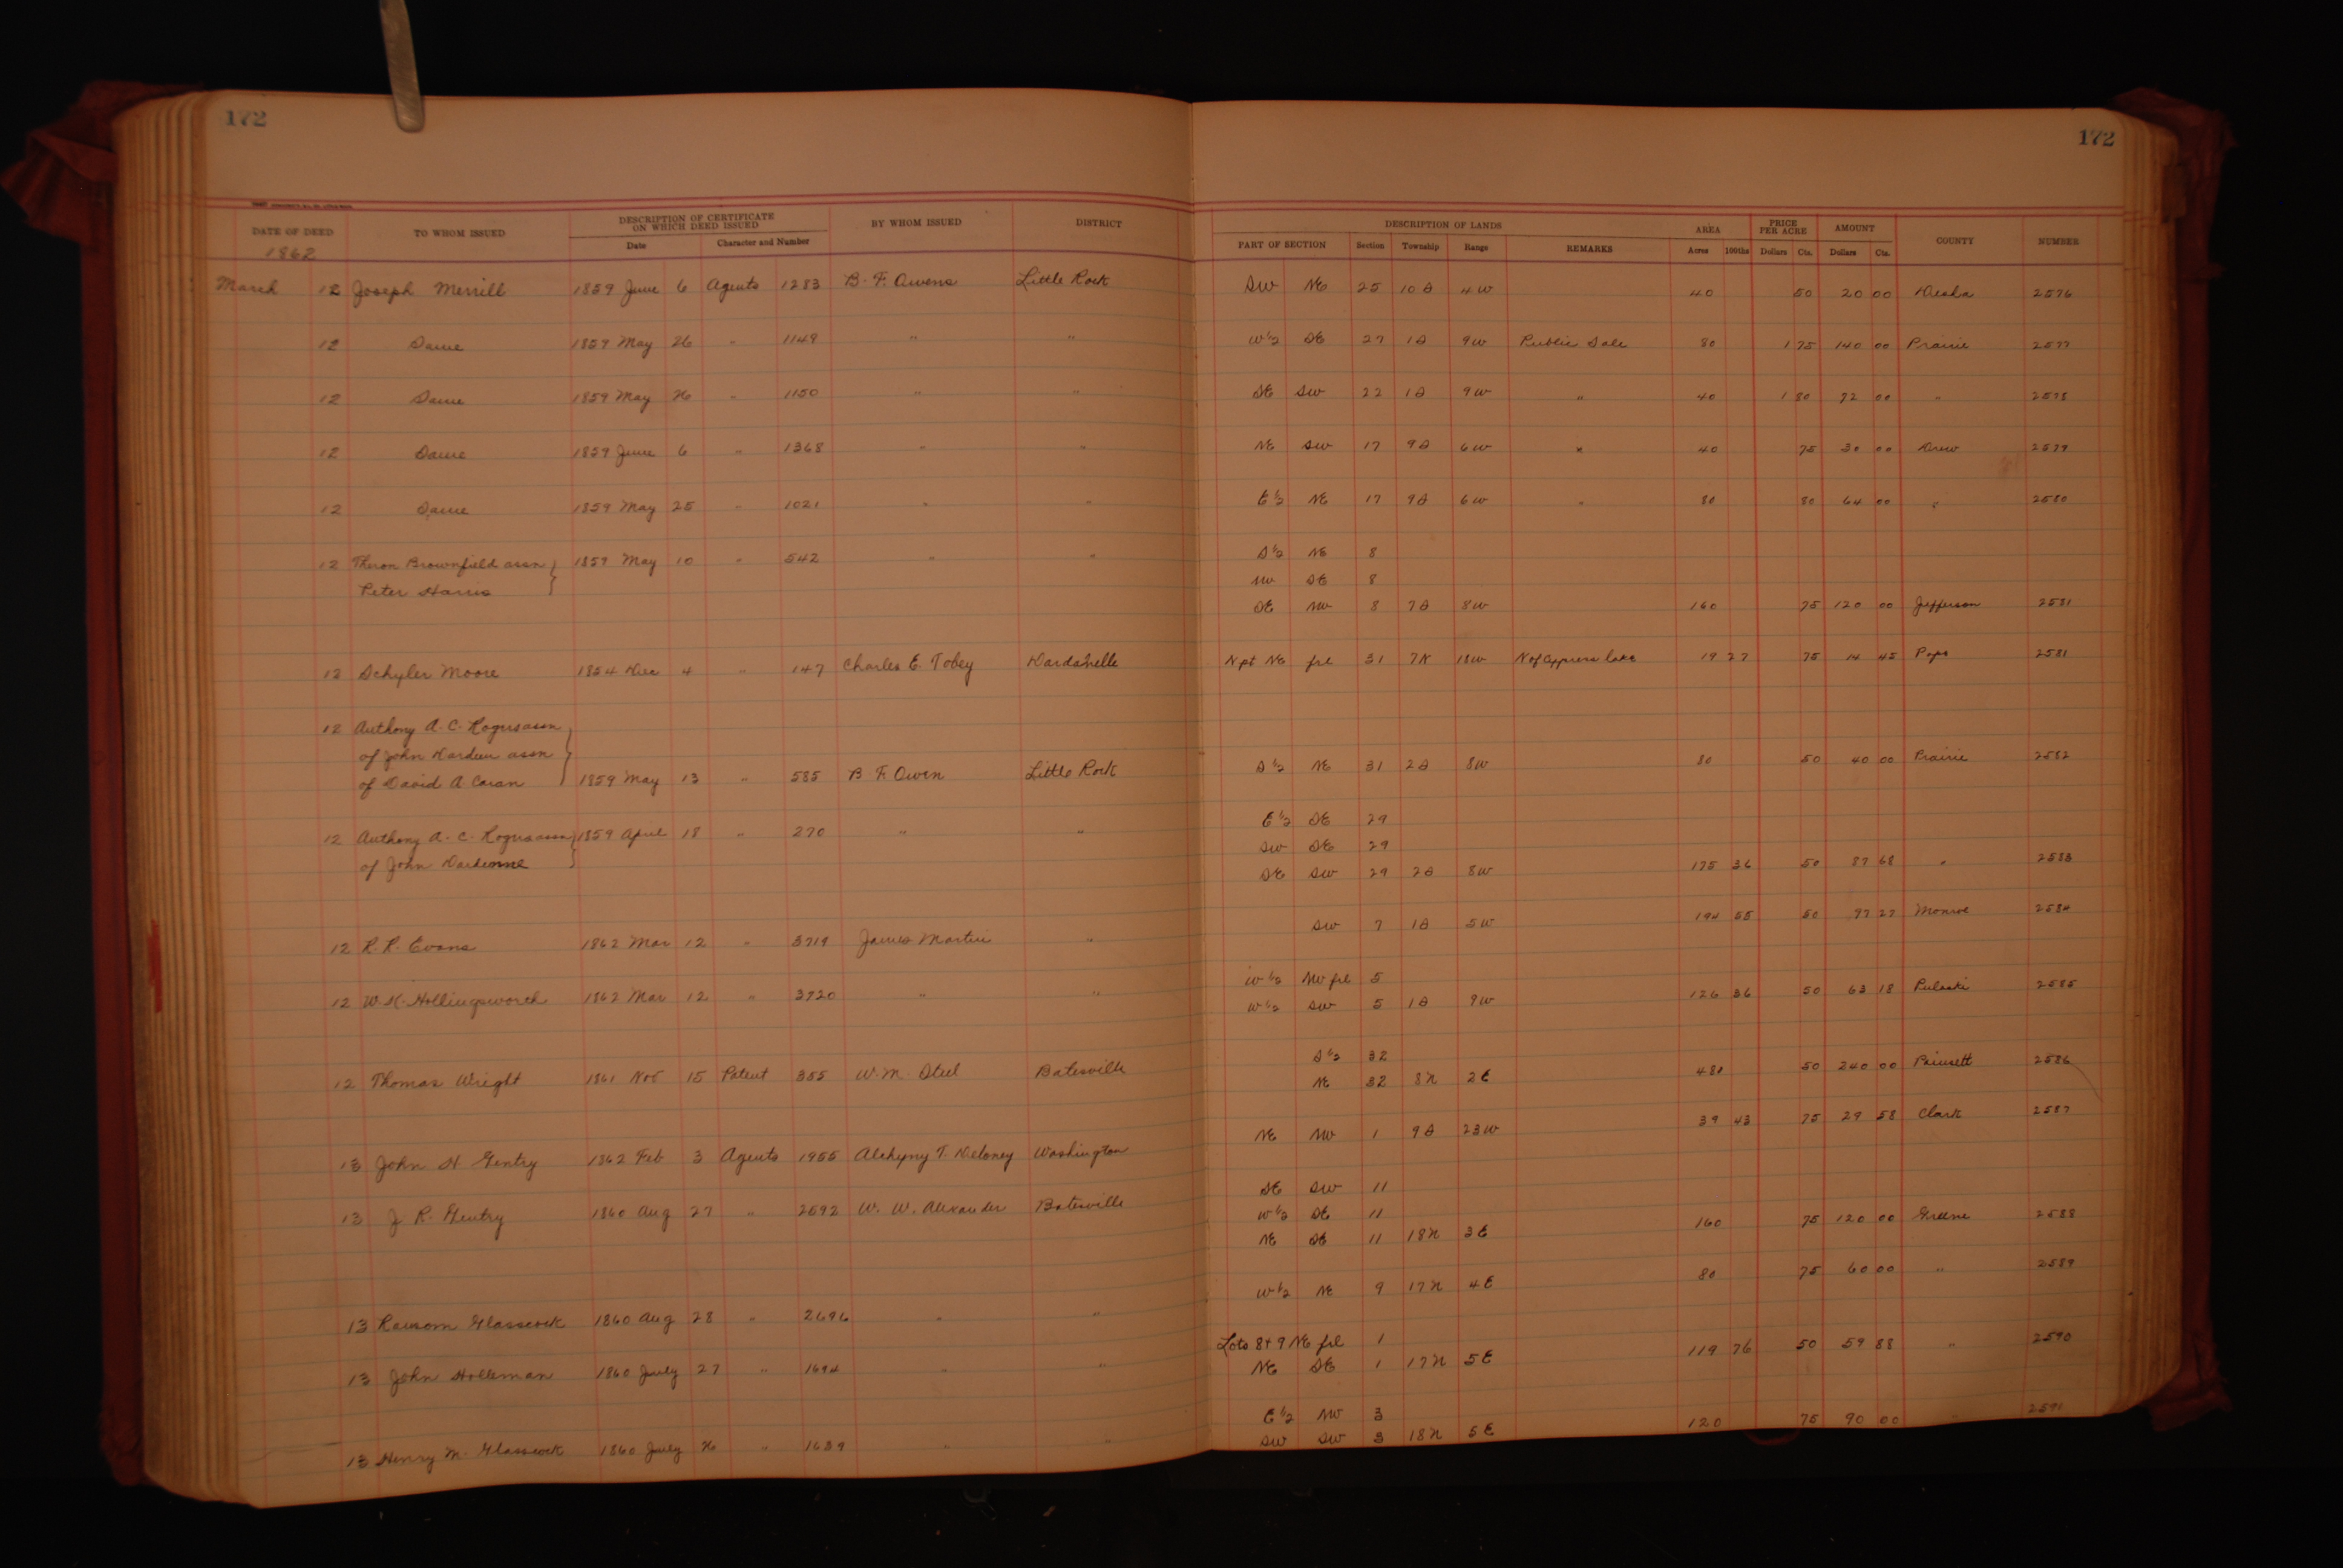 172
172
DATE OF DEED TO WHOM ISSUED DESCRIPTION OF CERTIFICATE ON WHICH DEED ISSUED BY WHOM ISSUED DISTRICT DESCRIPTION OF LANDS AREA PRICE PER ACRE AMOUNT COUNTY NUMBER
1862 Date Character and Number PART OF SECTION Section Township Range REMARKS Acres 100ths Dollars Cts. Dollars Cts.
March 12 Joseph Merrill 1859 June 6 Agents 1283 B. F. Owens Little Rock SW NE 25 10 S 4 W 40 50 20 00 Desha 2576
12 Same 1859 May 26 " 1149 " " W 1/2 SE 27 1 S 9 W Public Sale 80 1 75 140 00 Prairie 2577
12 Same 1859 May 26 " 1150 " " SE SW 22 1 S 9 W " 40 1 80 72 00 " 2578
12 Same 1859 June 6 " 1368 " " NE SW 17 9 S 6 W " 40 75 30 00 Drew 2579
12 Same 1859 May 25 " 1021 " " E 1/2 NE 17 9 S 6 W " 80 80 64 00 " 2580
12 Theron Brownfield assn 1859 May 10 " 542 " " S 1/2 NE 8
Peter Harris NW SE 8
SE NW 8 7 S 8 W 160 75 120 00 Jefferson 2581
12 Schyler Moore 1854 Dec 4 " 147 Charles E. Tobey Dardanelle N pt NE frl 31 7 N 18 W N of Cypress Lake 19 27 75 14 45 Pope 2581
12 Anthony A. C. Rogers assn
of John Dardenn assn
of David A Caran 1859 May 13 " 585 B. F. Owen Little Rock S 1/2 NE 31 2 S 8 W 80 50 40 00 Prairie 2582
12 Anthony A. C. Rogers assn 1859 April 18 " 270 " " E 1/2 SE 29
of John Dardenne SW SE 29
SE SW 29 2 S 8 W 175 36 50 87 68 " 2583
12 R. R. Evans 1862 Mar 12 " 3719 James Martin " SW 7 1 S 5 W 194 55 50 97 27 Monroe 2584
12 W. K. Hollingsworth 1862 Mar 12 " 3720 " " W 1/2 NW frl 5
W 1/2 SW 5 1 S 9 W 126 36 50 63 18 Pulaski 2585
12 Thomas Wright 1861 Nov 15 Patent 355 W. M. Steel Batesville S 1/2 32
NE 32 8 N 2 E 480 50 240 00 Poinsett 2586
13 John H Gentry 1862 Feb 3 Agents 1955 T. Deloney Washington NE NW 1 9 S 23 W 39 43 75 29 58 Clark 2587
13 J. R. Gentry 1860 Aug 27 " 2592 W. W. Alexander Batesville SE SW 11
W 1/2 SE 11
NE SE 11 18 N 3 E 160 75 120 00 Greene 2588
13 Ransom Glasscock 1860 Aug 28 " 2696 " " W 1/2 NE 9 17 N 4 E 80 75 60 00 " 2589
13 John Holleman 1860 July 27 " 1694 " " Lots 8 + 9 NE frl 1
NE SE 1 17 N 5 E 119 76 50 59 88 " 2590
13 Henry M. Glasscock 1860 July 26 " 1639 " " E 1/2 NW 3
SW SW 3 18 N 5 E 120 75 90 00 2591